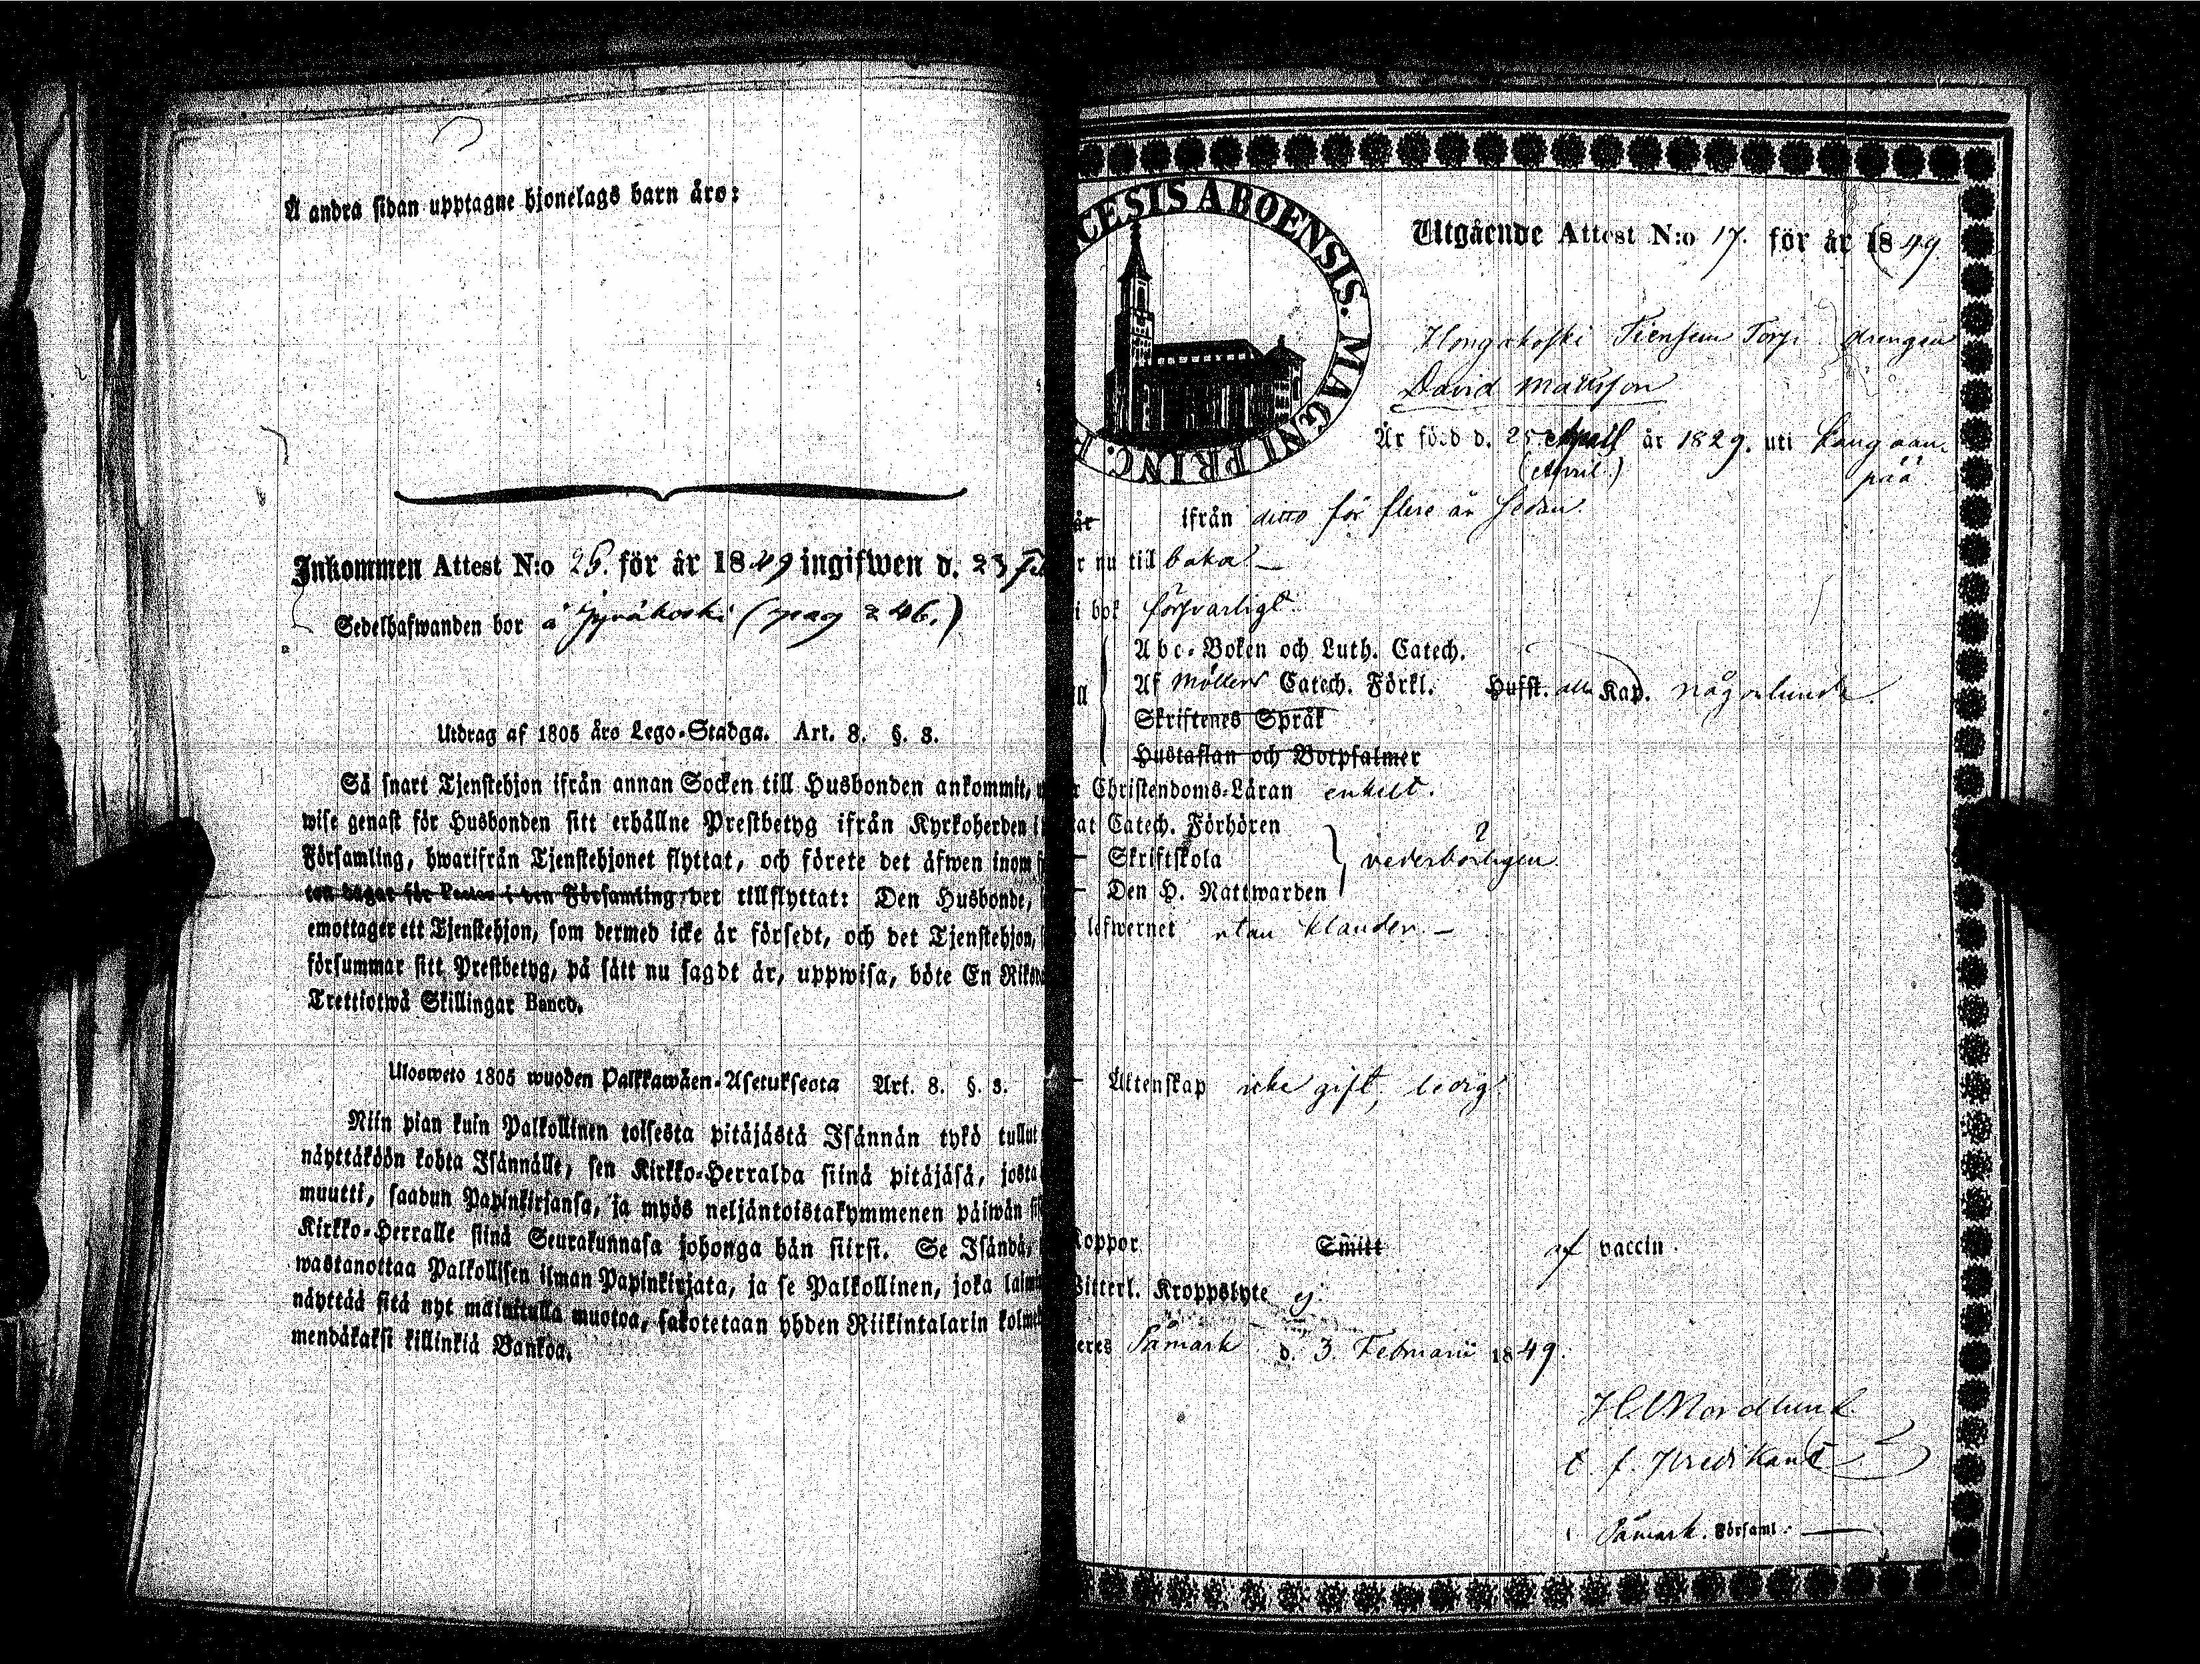 Å andra sidan upptagne hjonelags barn äro:
Inkommen Attest N:o 26. för år 1849 ingifwen d. 23
Sedelhafwanden bor å Jyväkoski (pag 246.)
Utdrag af 1805 års Lego-Stadga. Art. 8. §. 8.
Så snart Tjenstehjon ifrån annan Socken till Husbonden ankommit,
wise genast för Husbonden sitt erhållne Prestbetyg ifrån Kyrkoherden i
Församling, hwarifrån Tjenstehjonet flyttat, och förete det äfwen inom
det tillflyttat: Den Husbonde,
emottager ett Tjenstehjon, som dermed icke är försedt, och det Tjenstehjon,
försummar sitt Prestbetyg, på sätt nu sagdt är, uppwisa, böte En Riksd
Trettiotwå Skillingar Banco.
Ulosweto 1805 wuoden Palkkawäen-Asetuksesta Art. 8. §. 8.
Niin pian kuin Palkollinen toisesta pitäjästä Isännän tykö tullut
näyttäköön kohta Isännälle, sen Kirkko-Herralda siinä pitäjäsä, josta
muutti, saadun Papinkirjansa, ja myös neljäntoistakymmenen päiwän
Kirkko-Herralle siinä Seurakunnasa johonga hän siirsi. Se Isändä,
wastanottaa Palkollisen ilman Papinkirjata, ja se Palkollinen, joka
näyttää sitä nyt mainittulla muotoa, sakotetaan yhden Riikintalarin kolme
mendäkaksi killinkiä Bankoa.
CESIS ABOENSIS. MAGNI PRINC.
Utgående Attest N:o 17. för år 1849.
Hongokoski Torp drengen
David Mattsson
Är född d. 25 år 1829. uti Kangaan-
(April.) pää
år ifrån ditto för flere år sedan
r nu till baka —
i bok försvarligt.
Abc-Boken och Luth. Catech.
Af Möllers Catech. Förkl. Hufst. alla Kap. någorlunda.
Skriftenes Språk
Hustaflan och Botpsalmer
Christendoms-Läran enkelt.
at Catech. Förhören
Skriftskola
vederbörligen
Den H. Nattwarden
lefwernet utan klander. —
Äktenskap icke gift, ledig.
Koppor Smitt af vaccin.
Witterl. Kroppslyte ej.
eres Påmark d. 3. Februarii 1849.
H. Nordlund
t. f. Predikant
i Påmark. Församl: —